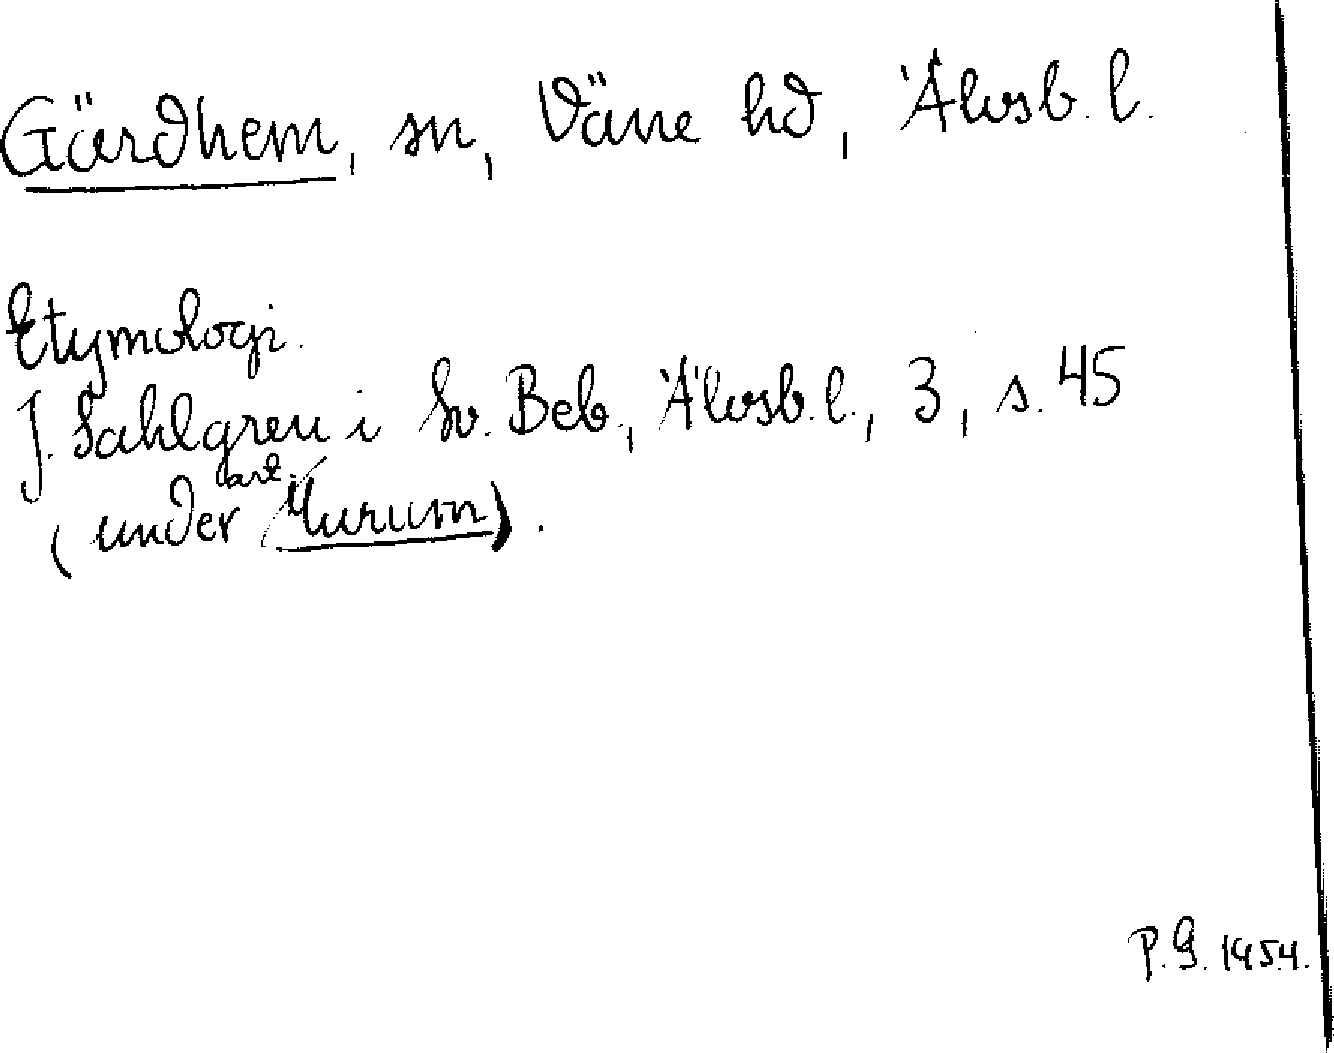 Gärdhem, sn, Väne hd, Älvsb. l.
Etymologi.
J. Sahlgren i Sv. Beb., Älvsb. l., 3, s. 45
(under art. Murum).
P. G. 1954.